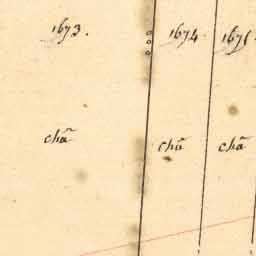 1673.
1674
1675
chã
chã
chã